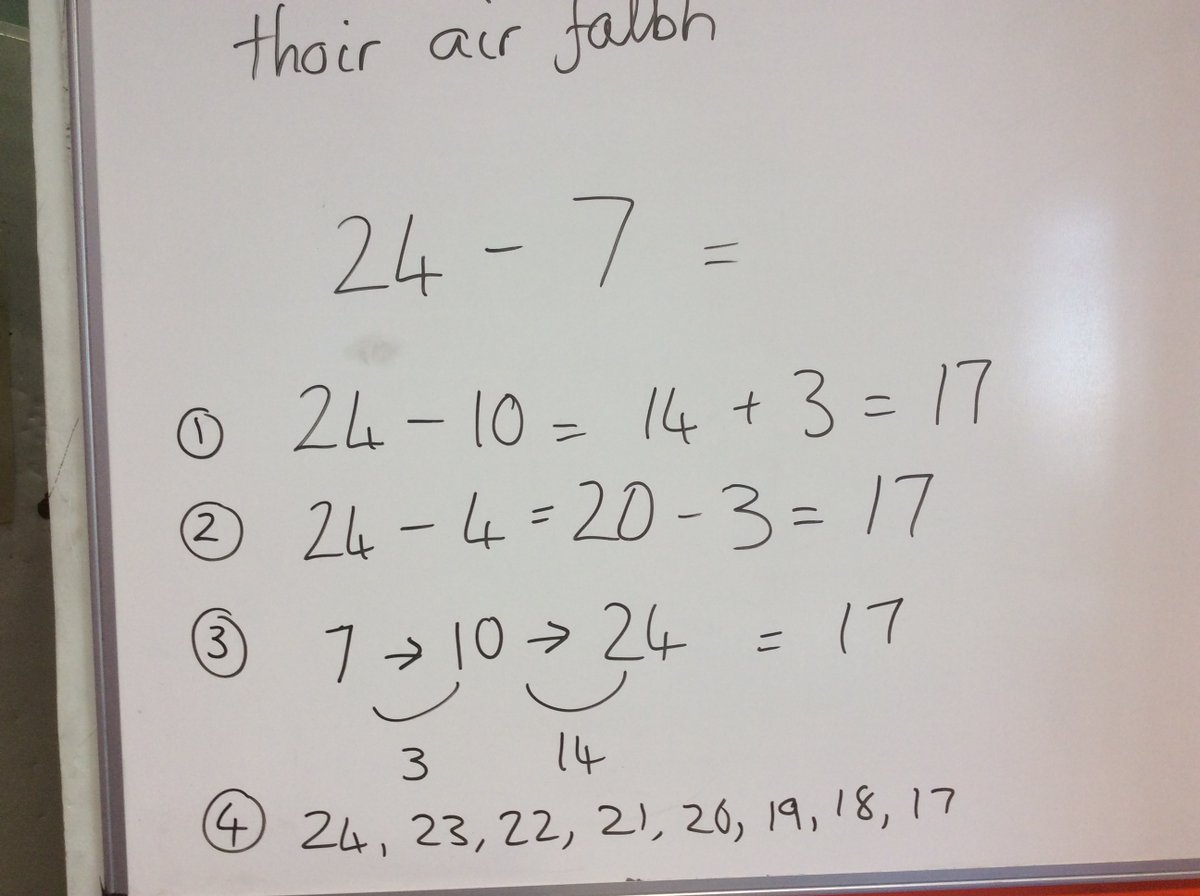 thoir air falbh
24 - 7 =
① 24 - 10 = 14 + 3 = 17
② 24 - 4 = 20 - 3 = 17
③ 7 → 10 → 24 = 17
3 14
④ 24, 23, 22, 21, 20, 19, 18, 17